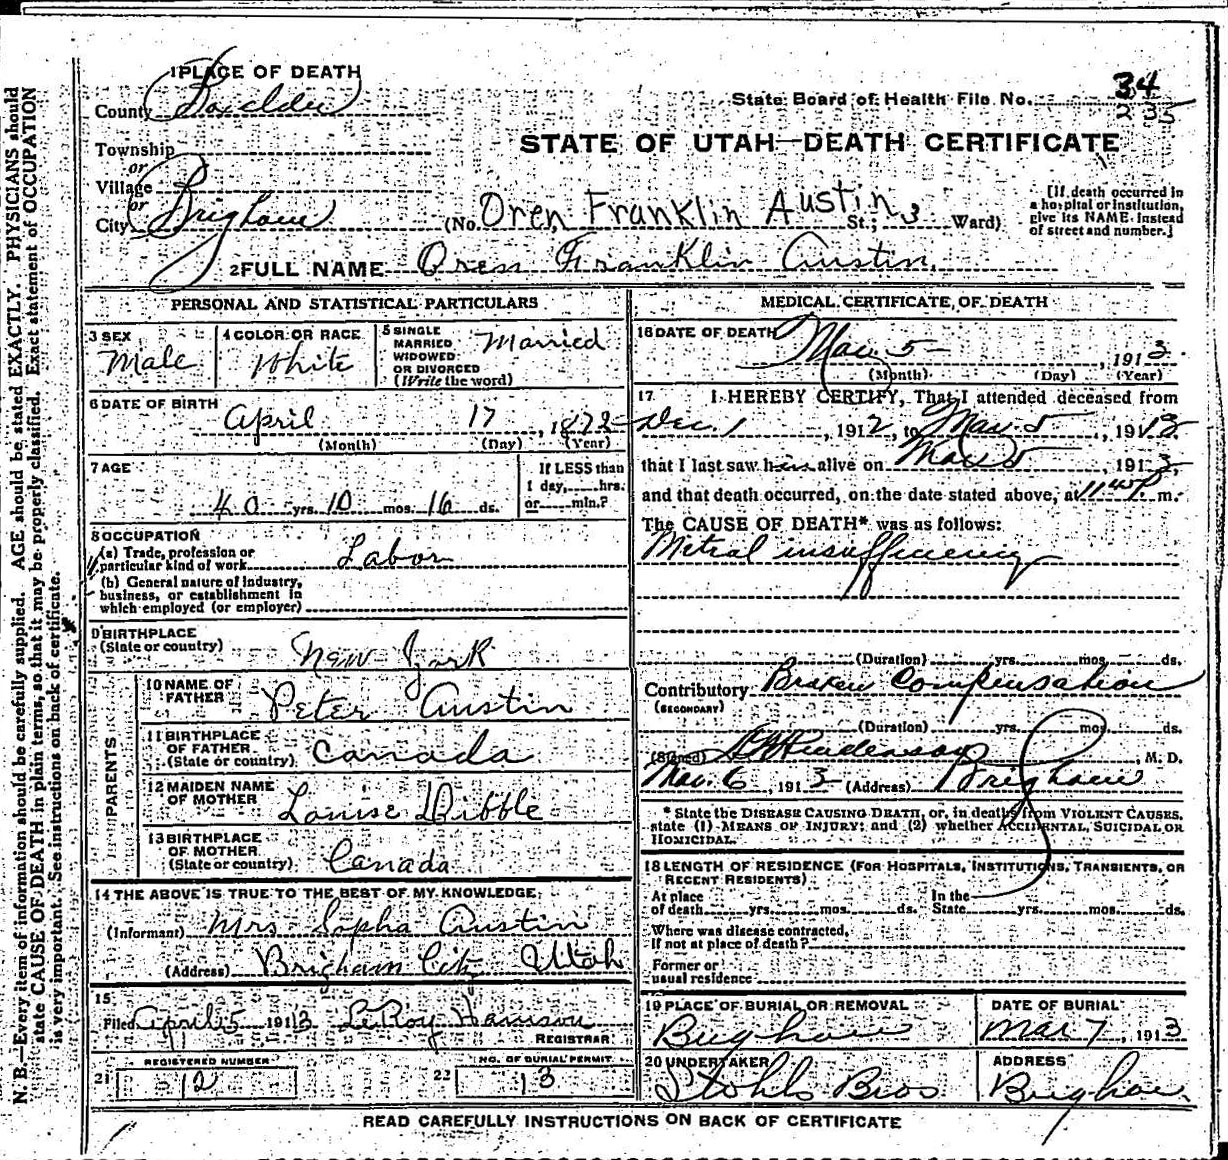 N. B.—Every item of information should be carefully supplied. AGE should be stated EXACTLY. PHYSICIANS should
state CAUSE OF DEATH in plain terms, so that it may be properly classified. Exact statement of OCCUPATION
is very important. See instructions on back of certificate.
1 PLACE OF DEATH
County Boxelder
Township
or
Village
or
City Brigham
State Board of Health File No. 34
235
STATE OF UTAH—DEATH CERTIFICATE
(No. Oren Franklin Austin St.; 3 Ward)
[If death occurred in
a hospital or institution,
give its NAME instead
of street and number.]
2 FULL NAME Oren Franklin Austin
PERSONAL AND STATISTICAL PARTICULARS
3 SEX
Male
4 COLOR OR RACE
White
5 SINGLE
MARRIED
WIDOWED
OR DIVORCED
(Write the word)
Married
6 DATE OF BIRTH
April 17, 1872
(Month) (Day) (Year)
7 AGE
40 yrs. 10 mos. 16 ds.
If LESS than
1 day, hrs.
or min.?
8 OCCUPATION
(a) Trade, profession or
particular kind of work Labor
(b) General nature of industry,
business, or establishment in
which employed (or employer)
9 BIRTHPLACE
(State or country) New York
PARENTS
10 NAME OF
FATHER Peter Austin
11 BIRTHPLACE
OF FATHER
(State or country) Canada
12 MAIDEN NAME
OF MOTHER Louise Dibble
13 BIRTHPLACE
OF MOTHER
(State or country) Canada
14 THE ABOVE IS TRUE TO THE BEST OF MY KNOWLEDGE
(Informant) Mrs Sopha Austin
(Address) Brigham City Utah
15
Filed April 5 1913 LeRoy Harrison
REGISTRAR
REGISTERED NUMBER
21 12
NO. OF BURIAL PERMIT
22 13
MEDICAL CERTIFICATE OF DEATH
16 DATE OF DEATH
Mar. 5 , 1913
(Month) (Day) (Year)
17 I HEREBY CERTIFY, That I attended deceased from
Dec. 1 , 1912, to Mar. 5 , 1913
that I last saw him alive on Mar 5 , 1913,
and that death occurred, on the date stated above, at 11 m.
The CAUSE OF DEATH* was as follows:
Mitral insufficiency
(Duration) yrs. mos. ds.
Contributory Broken Compensation
(SECONDARY)
(Duration) yrs. mos. ds.
(Signed) M. D.
Mar. 6, 1913 (Address) Brigham
* State the DISEASE CAUSING DEATH, or, in deaths from VIOLENT CAUSES,
state (1) MEANS OF INJURY; and (2) whether ACCIDENTAL, SUICIDAL OR
HOMICIDAL.
18 LENGTH OF RESIDENCE (FOR HOSPITALS, INSTITUTIONS, TRANSIENTS, OR
RECENT RESIDENTS)
At place
of death yrs. mos. ds.
In the
State yrs. mos. ds.
Where was disease contracted,
If not at place of death?
Former or
usual residence
19 PLACE OF BURIAL OR REMOVAL
Brigham
DATE OF BURIAL
Mar 7, 1913
20 UNDERTAKER
Stohls Bros
ADDRESS
Brigham
READ CAREFULLY INSTRUCTIONS ON BACK OF CERTIFICATE